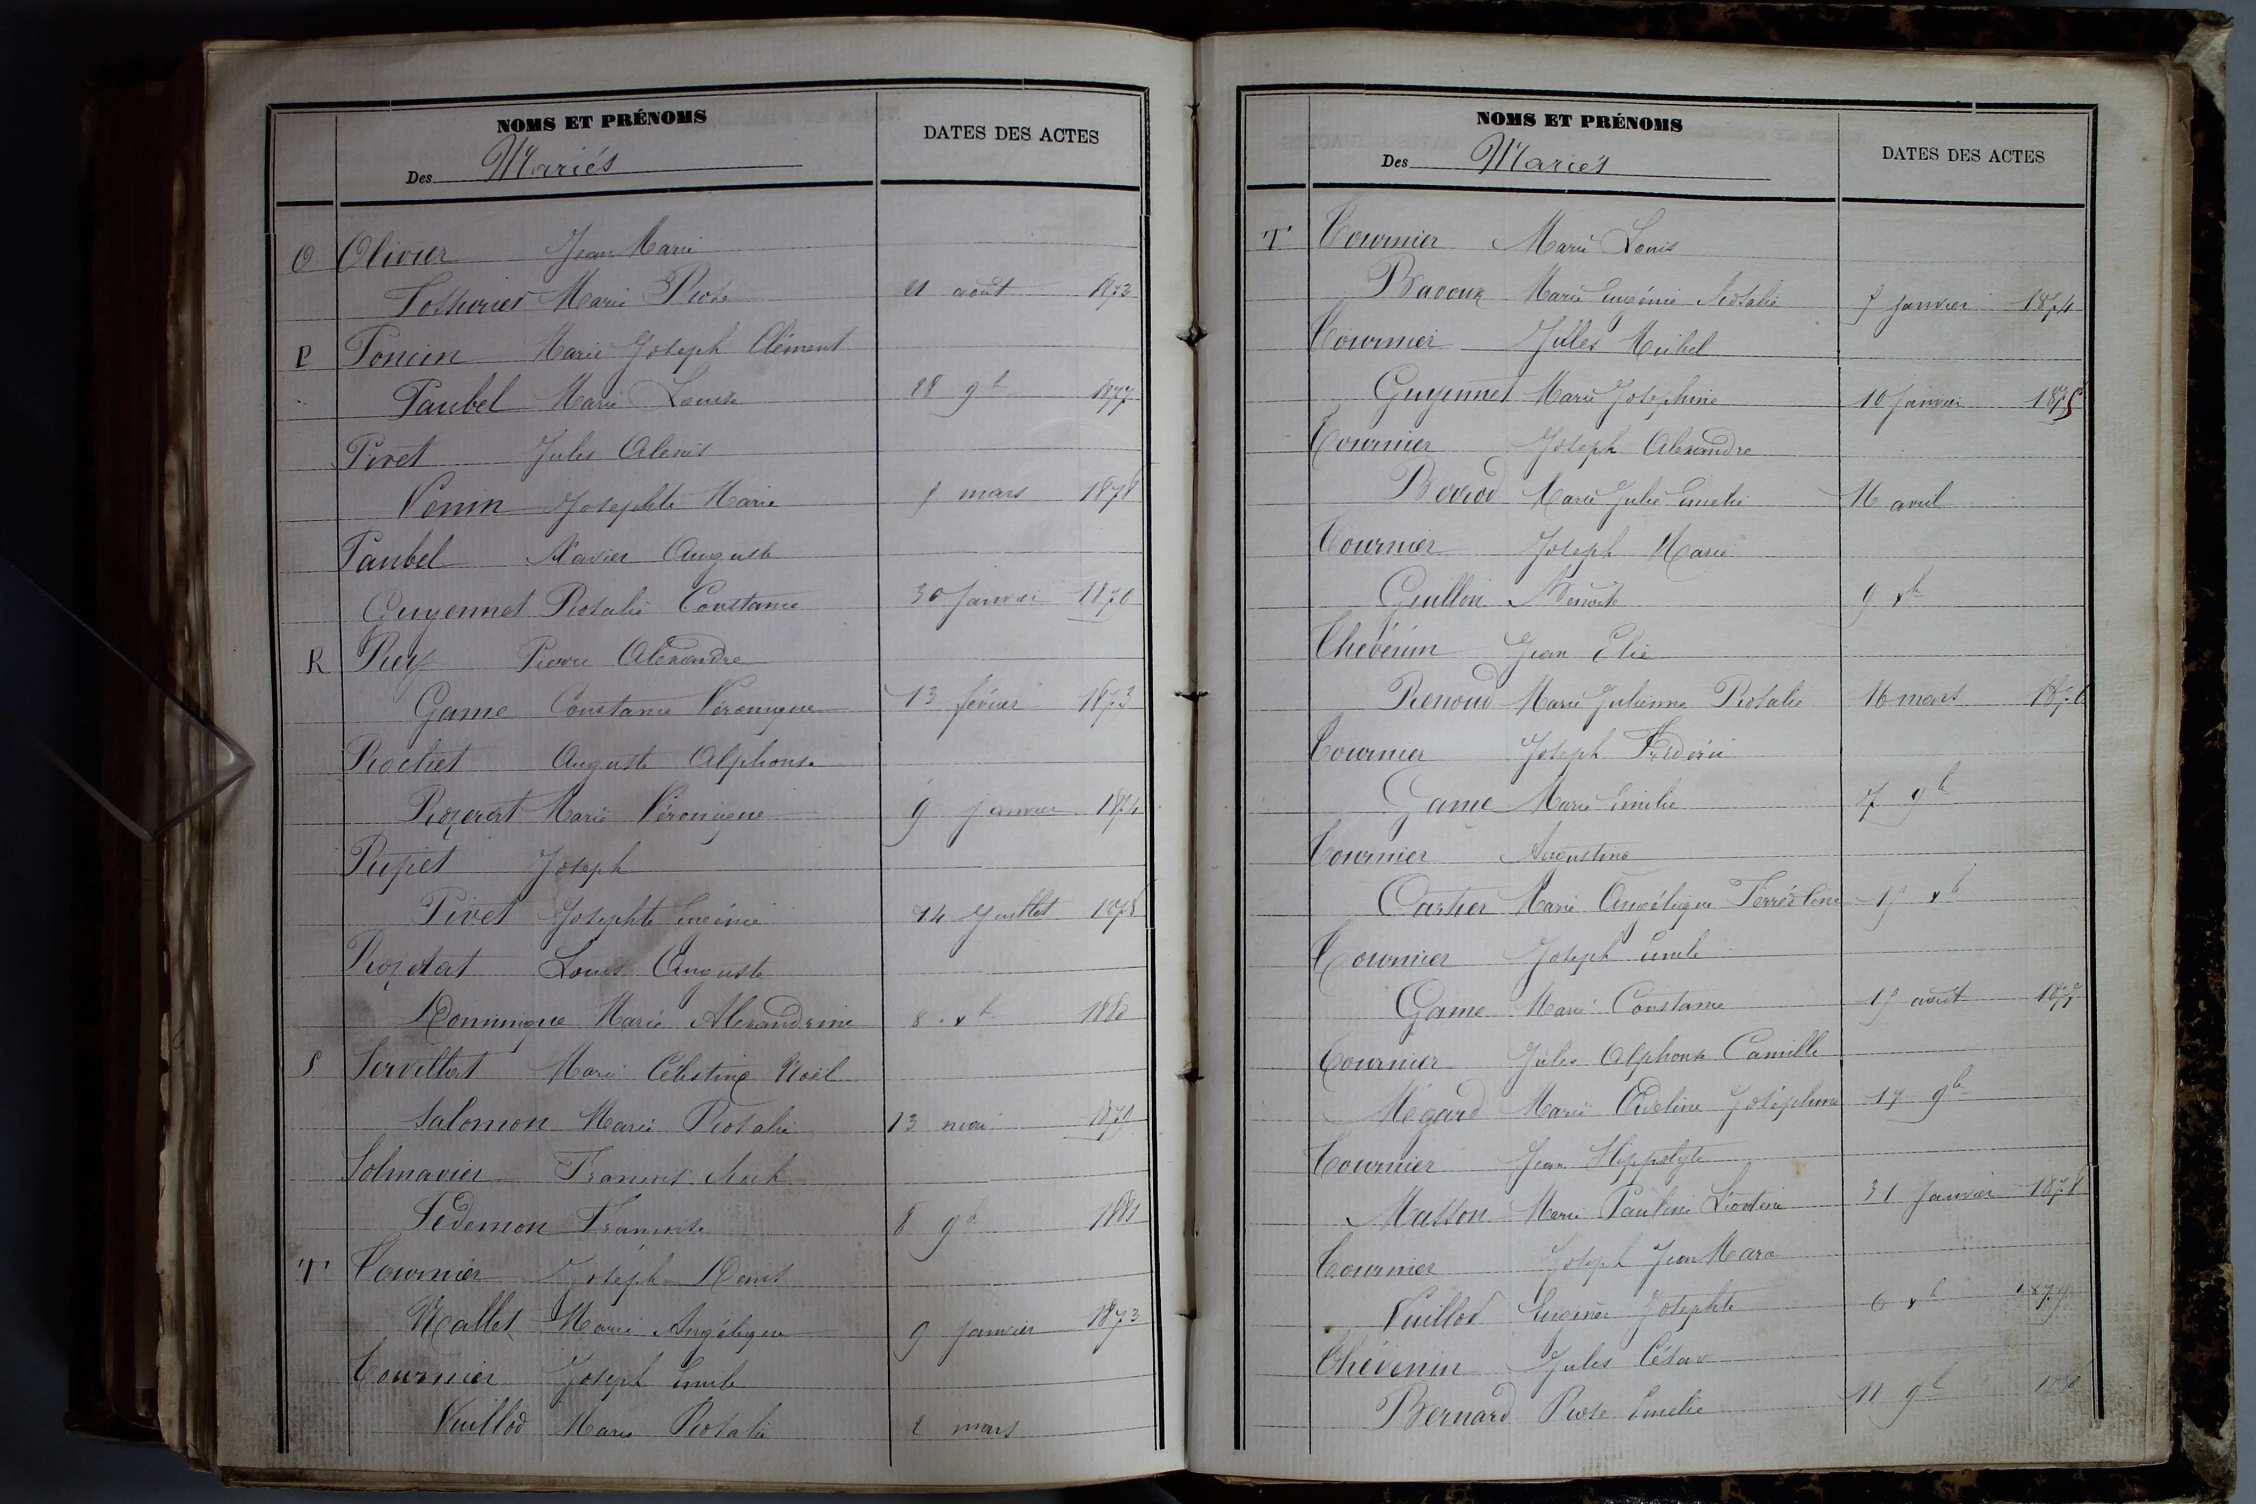 NOMS ET PRÉNOMS
Des Mariés
DATES DES ACTES
O Olivier Jean Marie
Marie Rose 21 août 1873
P Poncin Marie Joseph Clément
Paubel Marie Louise 28 9b 1877
Pivet Jules Alexis
Venin Josephte Marie mars 1878
Paubel Xavier Auguste
Guyennet Rosalie Constance 30 Janvier 1870
R Rey Pierre Alexandre
Game Constance Véronique 13 février 1873
Rochet Auguste Alphonse
Rozerat Marie Véronique 9 janvier 1874
Joseph
Pivet Josephte Eugénie 14 Juillet 1878
Louis Auguste
Dominique Marie Alexandrine 8 xb 1880
S Servillat Marie Célestine Noël
Salomon Marie Rosalie 13 mai 1879
Solmavier
Sedemon Françoise 8 9b 1881
T Tournier Joseph Denis
Mallet Marie Angélique 9 janvier 1873
Tournier Joseph Emile
Vuillod Marie Rosalie 2 mars
NOMS ET PRÉNOMS
Des Mariés
DATES DES ACTES
T Tournier Marie Louis
Bavoux Marie Eugénie Rosalie 7 janvier 1874
Tournier Jules Michel
Guyennet Marie Joséphine 10 Janvier 1875
Tournier Joseph Alexandre
Berrod Marie Julie Emelie 16 avril
Tournier Joseph Marie
Guillon Benoite 9 xb
Thévenin Jean Elie
Renoud Marie Julienne Rosalie 16 mars 1876
Tournier Joseph Frédéric
Game Marie Emilie 7 9b
Tournier Augustine
Cartier Marie Angélique xb
Tournier Joseph Emile
Game Marie Constance août 1877
Tournier Jules Alphonse Camille
Mégard Marie Adeline Joséphine 17 9b
Tournier Jean Hippolyte
Masson Marie Pauline Léontine 31 Janvier 1878
Tournier Joseph Jean Marc
Vuillod Eugénie Josephte 6 xb 1879
Thévenin Jules César
Bernard Rose Emelie 11 9b